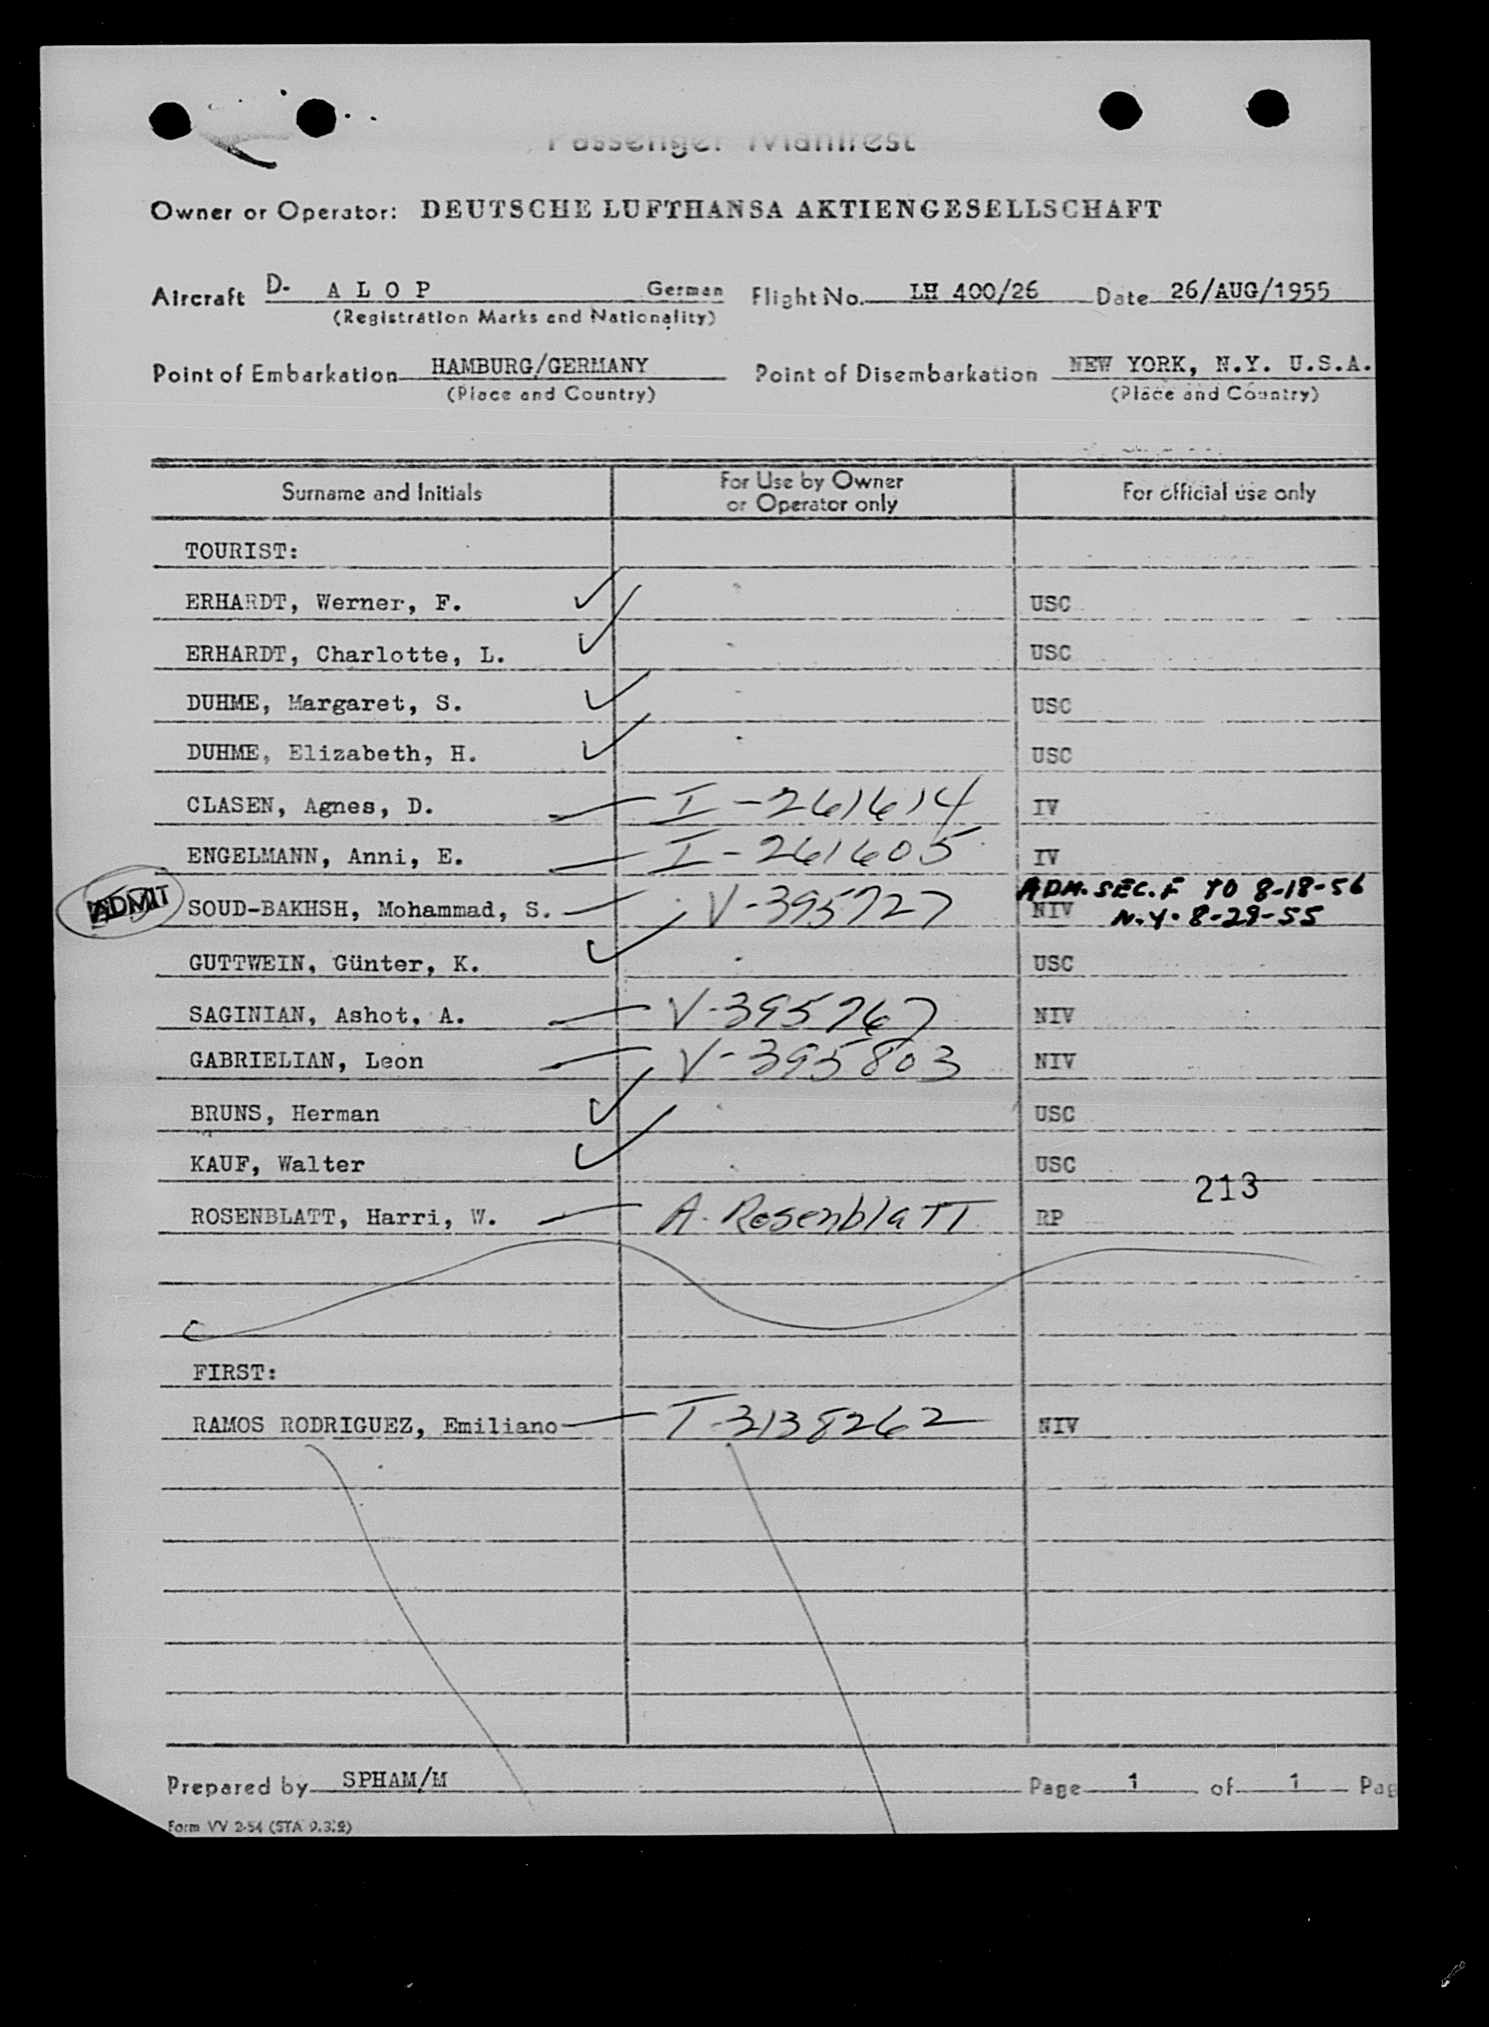 Passenger Manifest
Owner or Operator: DEUTSCHE LUFTHANSA AKTIENGESELLSCHAFT
Aircraft D- A L O P German Flight No. LH 400/26 Date 26/AUG/1955
(Registration Marks and Nationality)
Point of Embarkation HAMBURG/GERMANY Point of Disembarkation NEW YORK, N.Y. U.S.A.
(Place and Country) (Place and Country)
Surname and Initials For Use by Owner or Operator only For official use only
TOURIST:
ERHARDT, Werner, F. USC
ERHARDT, Charlotte, L. USC
DUHME, Margaret, S. USC
DUHME, Elizabeth, H. USC
CLASEN, Agnes, D. I-261614 IV
ENGELMANN, Anni, E. I-261605 IV
ADM. SEC. F TO 8-18-56
ADMIT SOUD-BAKHSH, Mohammad, S. V-395727 NIV N.Y. 8-29-55
GUTTWEIN, Günter, K. USC
SAGINIAN, Ashot, A. V-395767 NIV
GABRIELIAN, Leon V-395803 NIV
BRUNS, Herman USC
KAUF, Walter USC
213
ROSENBLATT, Harri, W. A. Rosenblatt RP
FIRST:
RAMOS RODRIGUEZ, Emiliano I-3138262 NIV
Prepared by SPHAM/M Page 1 of 1 Pag
Form VV 2-54 (STA 9.3.2)